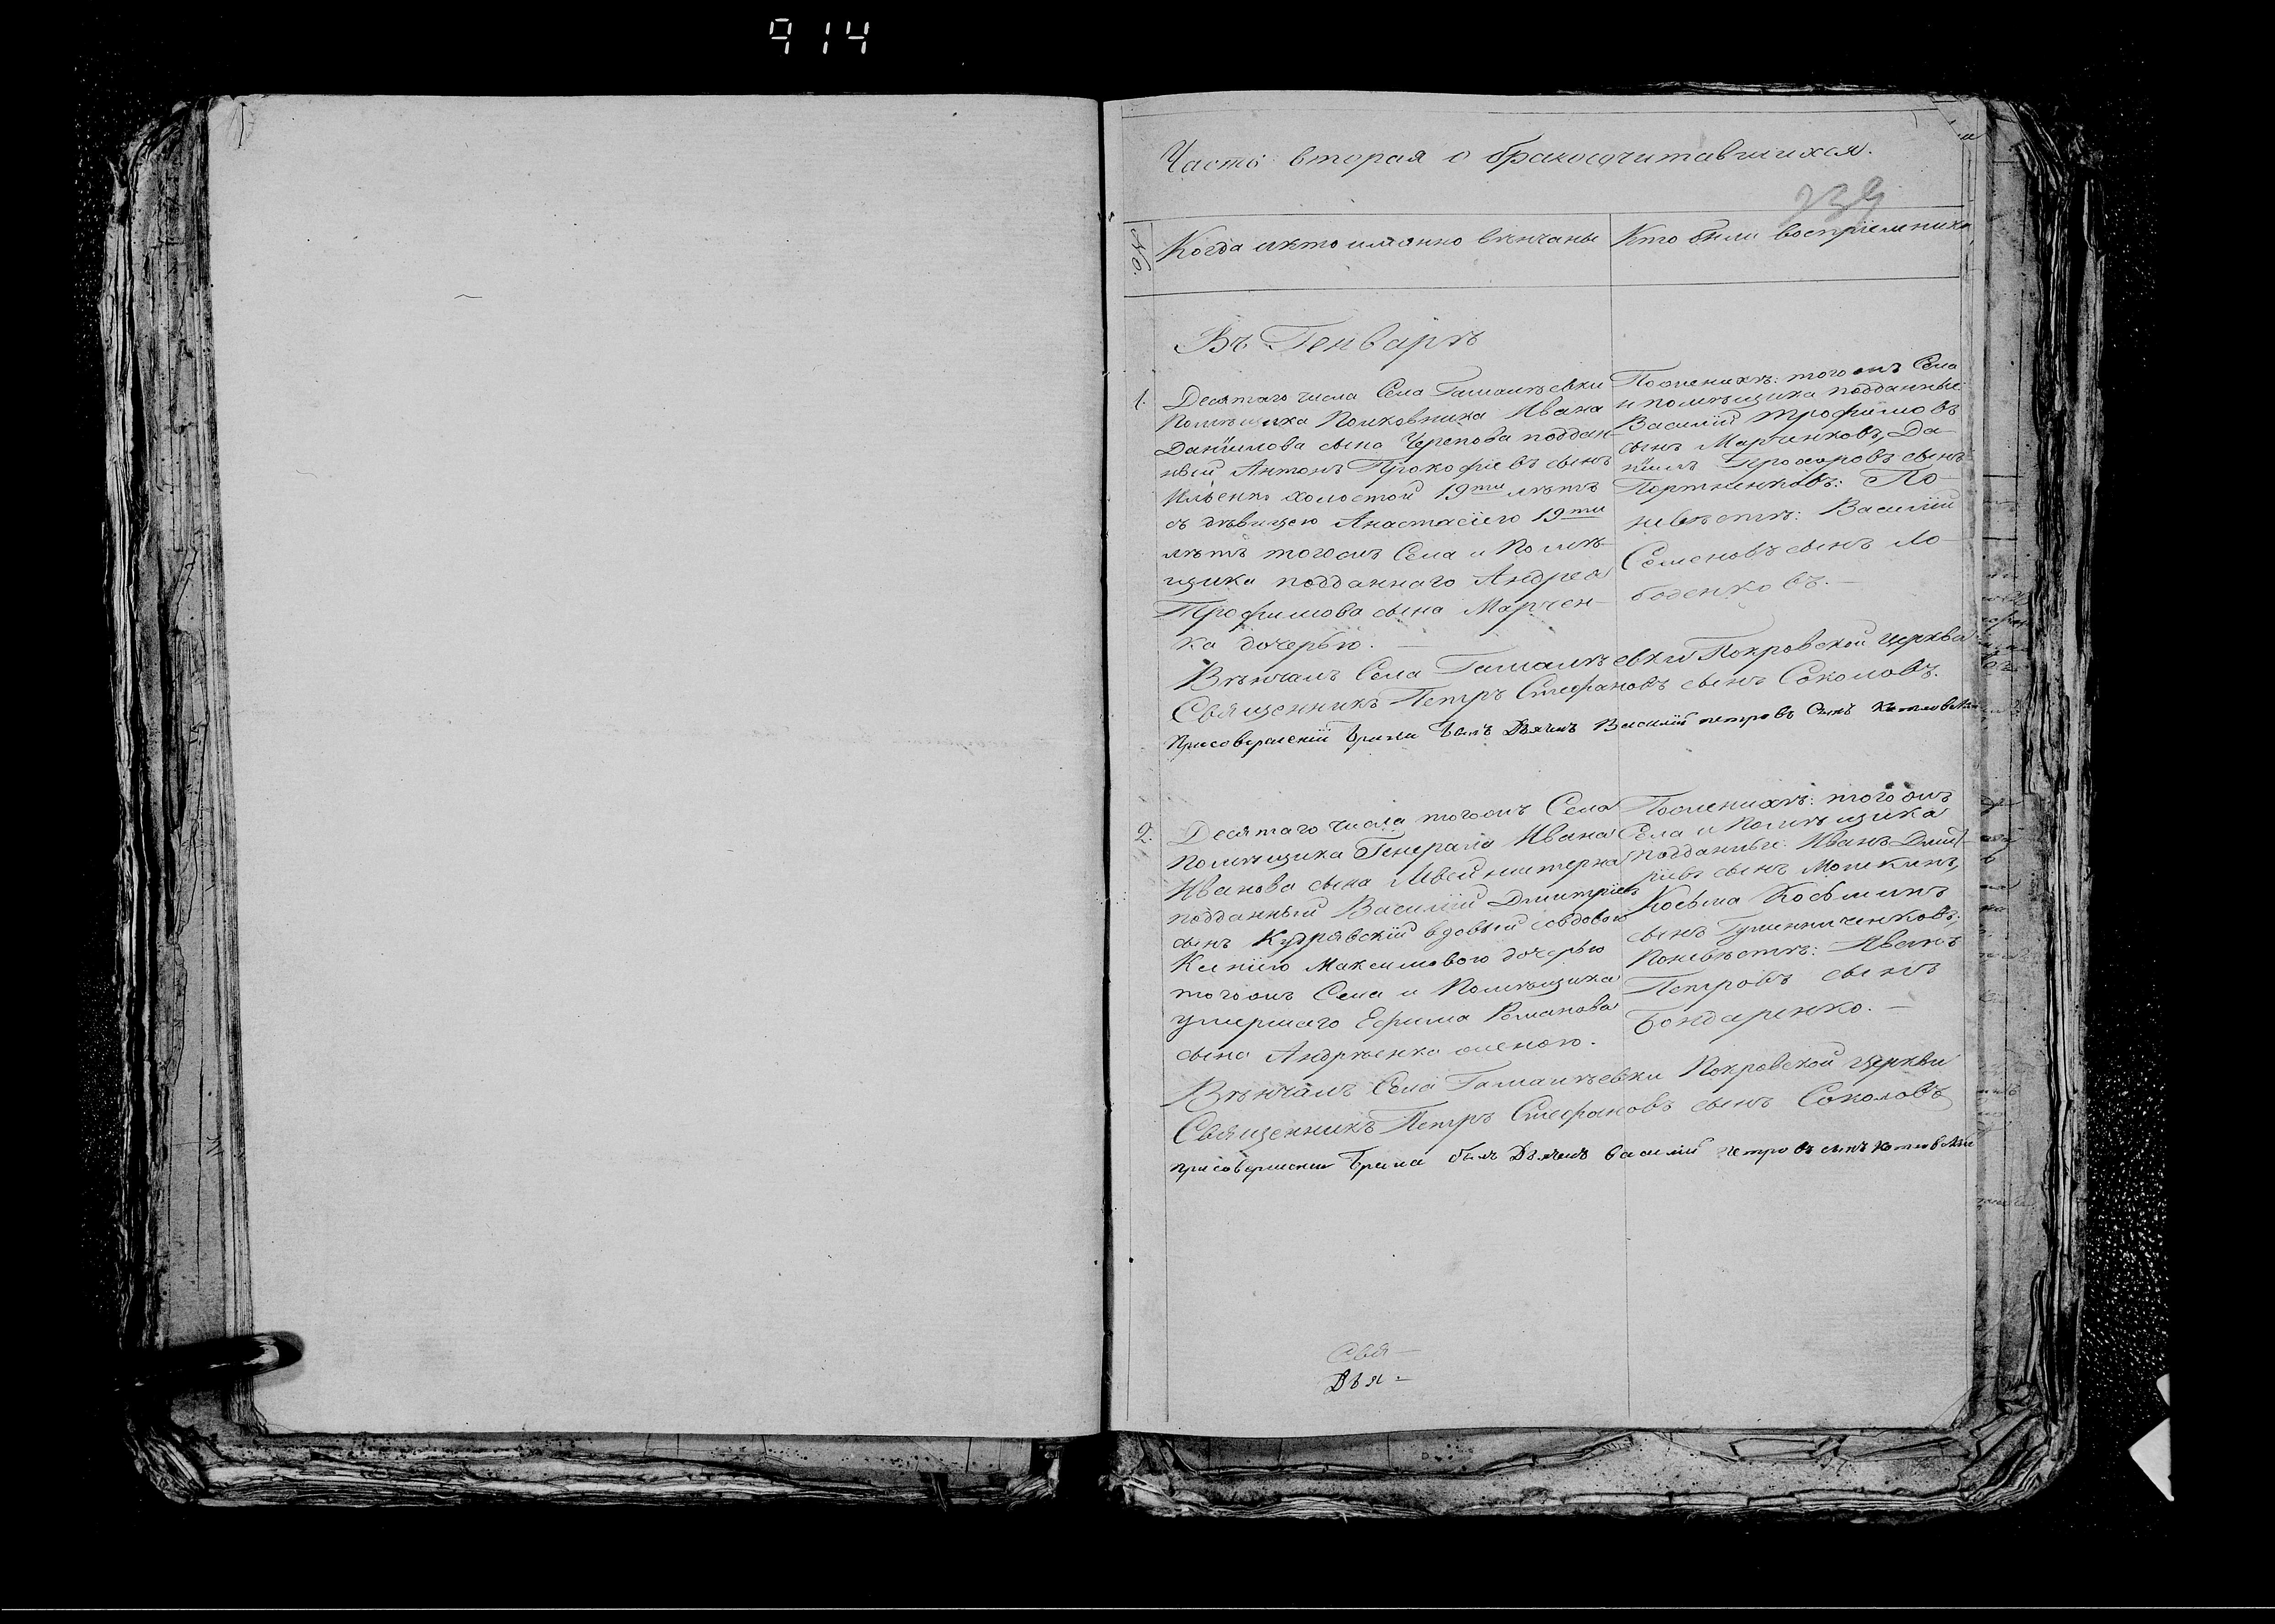 914
Часть вторая о бракосочитавшихся.
739
№. Когда и кто имянно венчаны
Кто были воспріемники
Въ Генварѣ
1. Десятаго числа Села Гамалѣевки
Помѣщика Полковника Ивана
Даніилова сына Черепова поддан-
ный Антонъ Прокофіевъ сынъ
Ильенко холостой 19ти лѣтъ
съ дѣвицею Анастасіею 19ти
лѣтъ тогожъ Села и Помѣ-
щика подданнаго Андрея
Трофимова сына Марчен-
ка дочерью.
Поженихѣ: того жъ Села
и помѣщика подданные
Василій Трофимовъ
сынъ Марченковъ, Да-
ніилъ Прохоровъ сынъ
По-
невѣстѣ: Василій
Семеновъ сынъ Ло-
боденковъ.
Вѣнчалъ Села Гамалѣевки Покровской церкви
Священникъ Петръ Стефановъ сынъ Соколовъ.
Присовершеніи брака былъ Дьячокъ Василій петровъ Сынъ
2. Десятаго числа тогожъ Села
Помѣщика Генерала Ивана
Иванова сына
подданный Василій Дмитріевъ
сынъ Кудрявскій вдовый совдовою
Ксеніею Максимовою дочерью
тогожъ Села и Помѣщика
умершаго Ефима Романова
сына Андрѣенка женою.
Поженихѣ: того жъ
Села и Помѣщика
подданные: Иванъ Дмит-
ріевъ сынъ Мошкинъ,
Косьма Косьминъ
сынъ
Поневѣстѣ: Иванъ
Петровъ сынъ
Бондаренко.
Вѣнчалъ Села Гамалѣевки Покровской церкви
Священникъ Петръ Стефановъ сынъ Соколовъ
присовершеніи брака былъ Дьячокъ василій петровъ сынъ
Свя-
Дья-